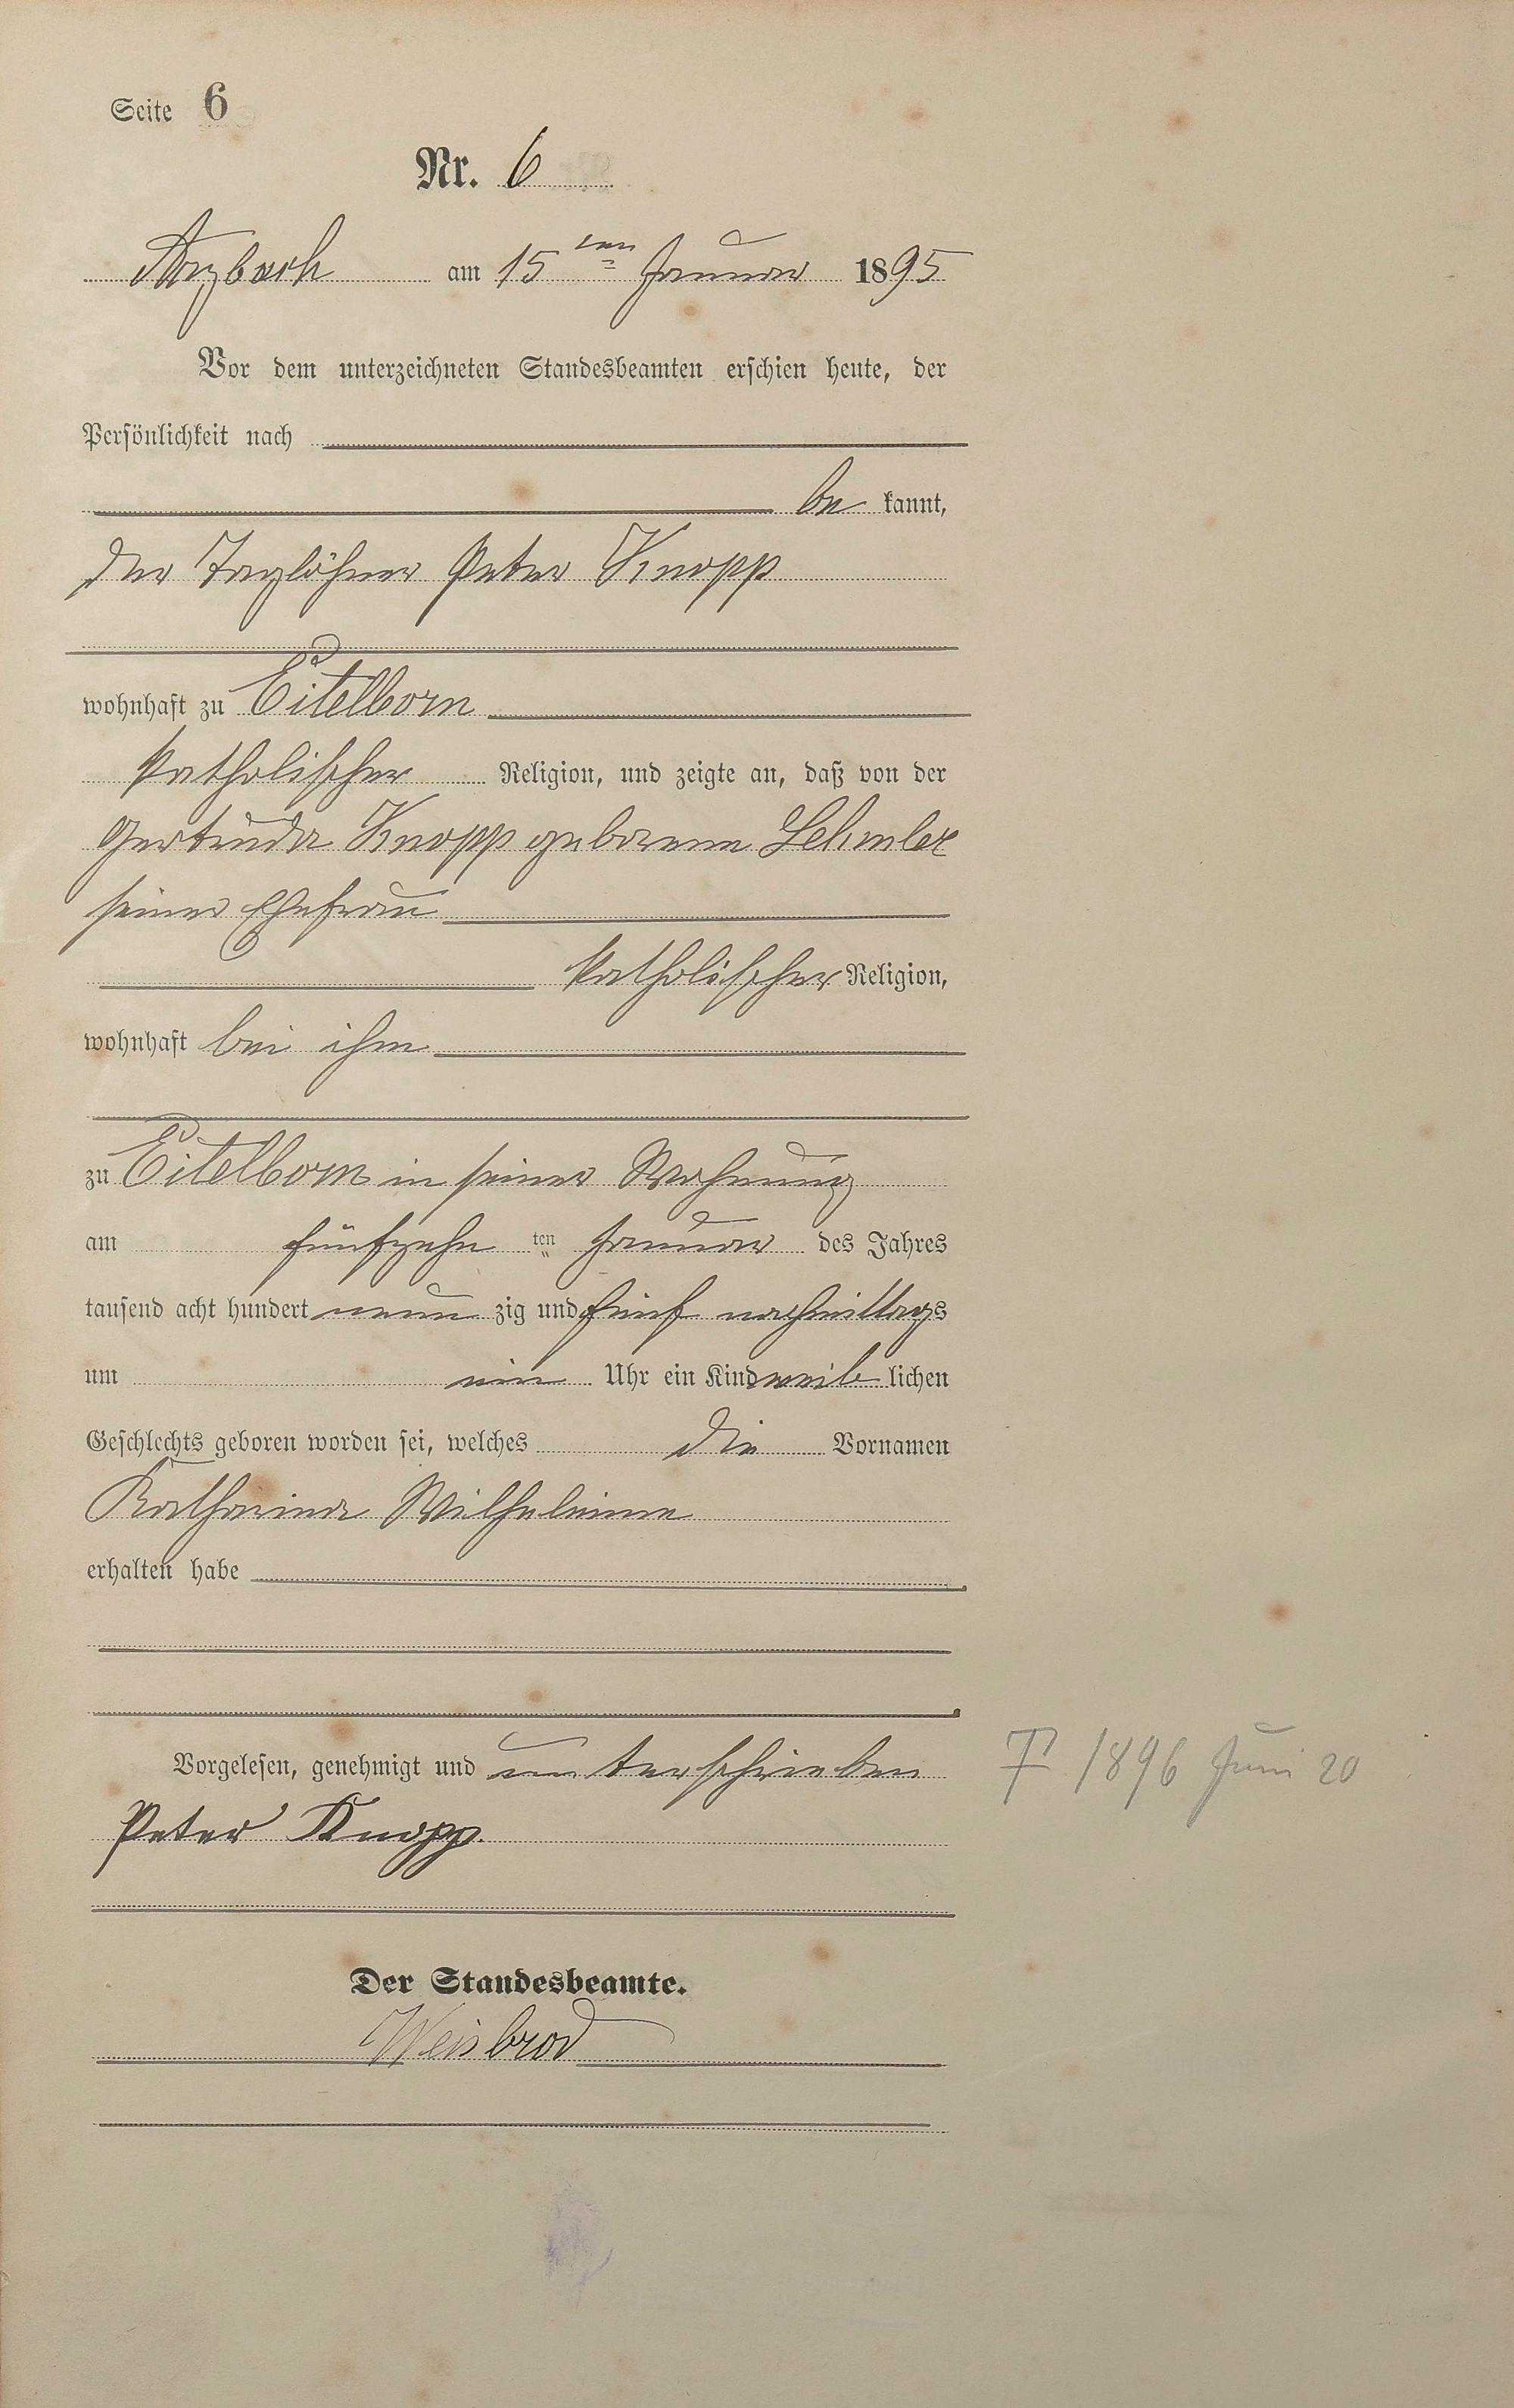 Seite 6
Nr. 6
Arzbach am 15ten Januar 1895
Vor dem unterzeichneten Standesbeamten erschien heute, der
Persönlichkeit nach
be kannt,
der Taglöhner Peter Knopp
wohnhaft zu Eitelborn
katholischer Religion, und zeigte an, daß von der
Gertruda Knopp geborene Lehmler
seiner Ehefrau
katholischer Religion,
wohnhaft bei ihm
zu Eitelborn in seiner Wohnung
am fünfzehn ten Januar des Jahres
tausend acht hundert neun zig und fünf nachmittags
um ein Uhr ein Kind weib lichen
Geschlechts geboren worden sei, welches die Vornamen
Katharina Wilhelmine
erhalten habe
Vorgelesen, genehmigt und unterschrieben
† 1896 Juni 20
Peter Knopp.
Der Standesbeamte.
Weisbrod